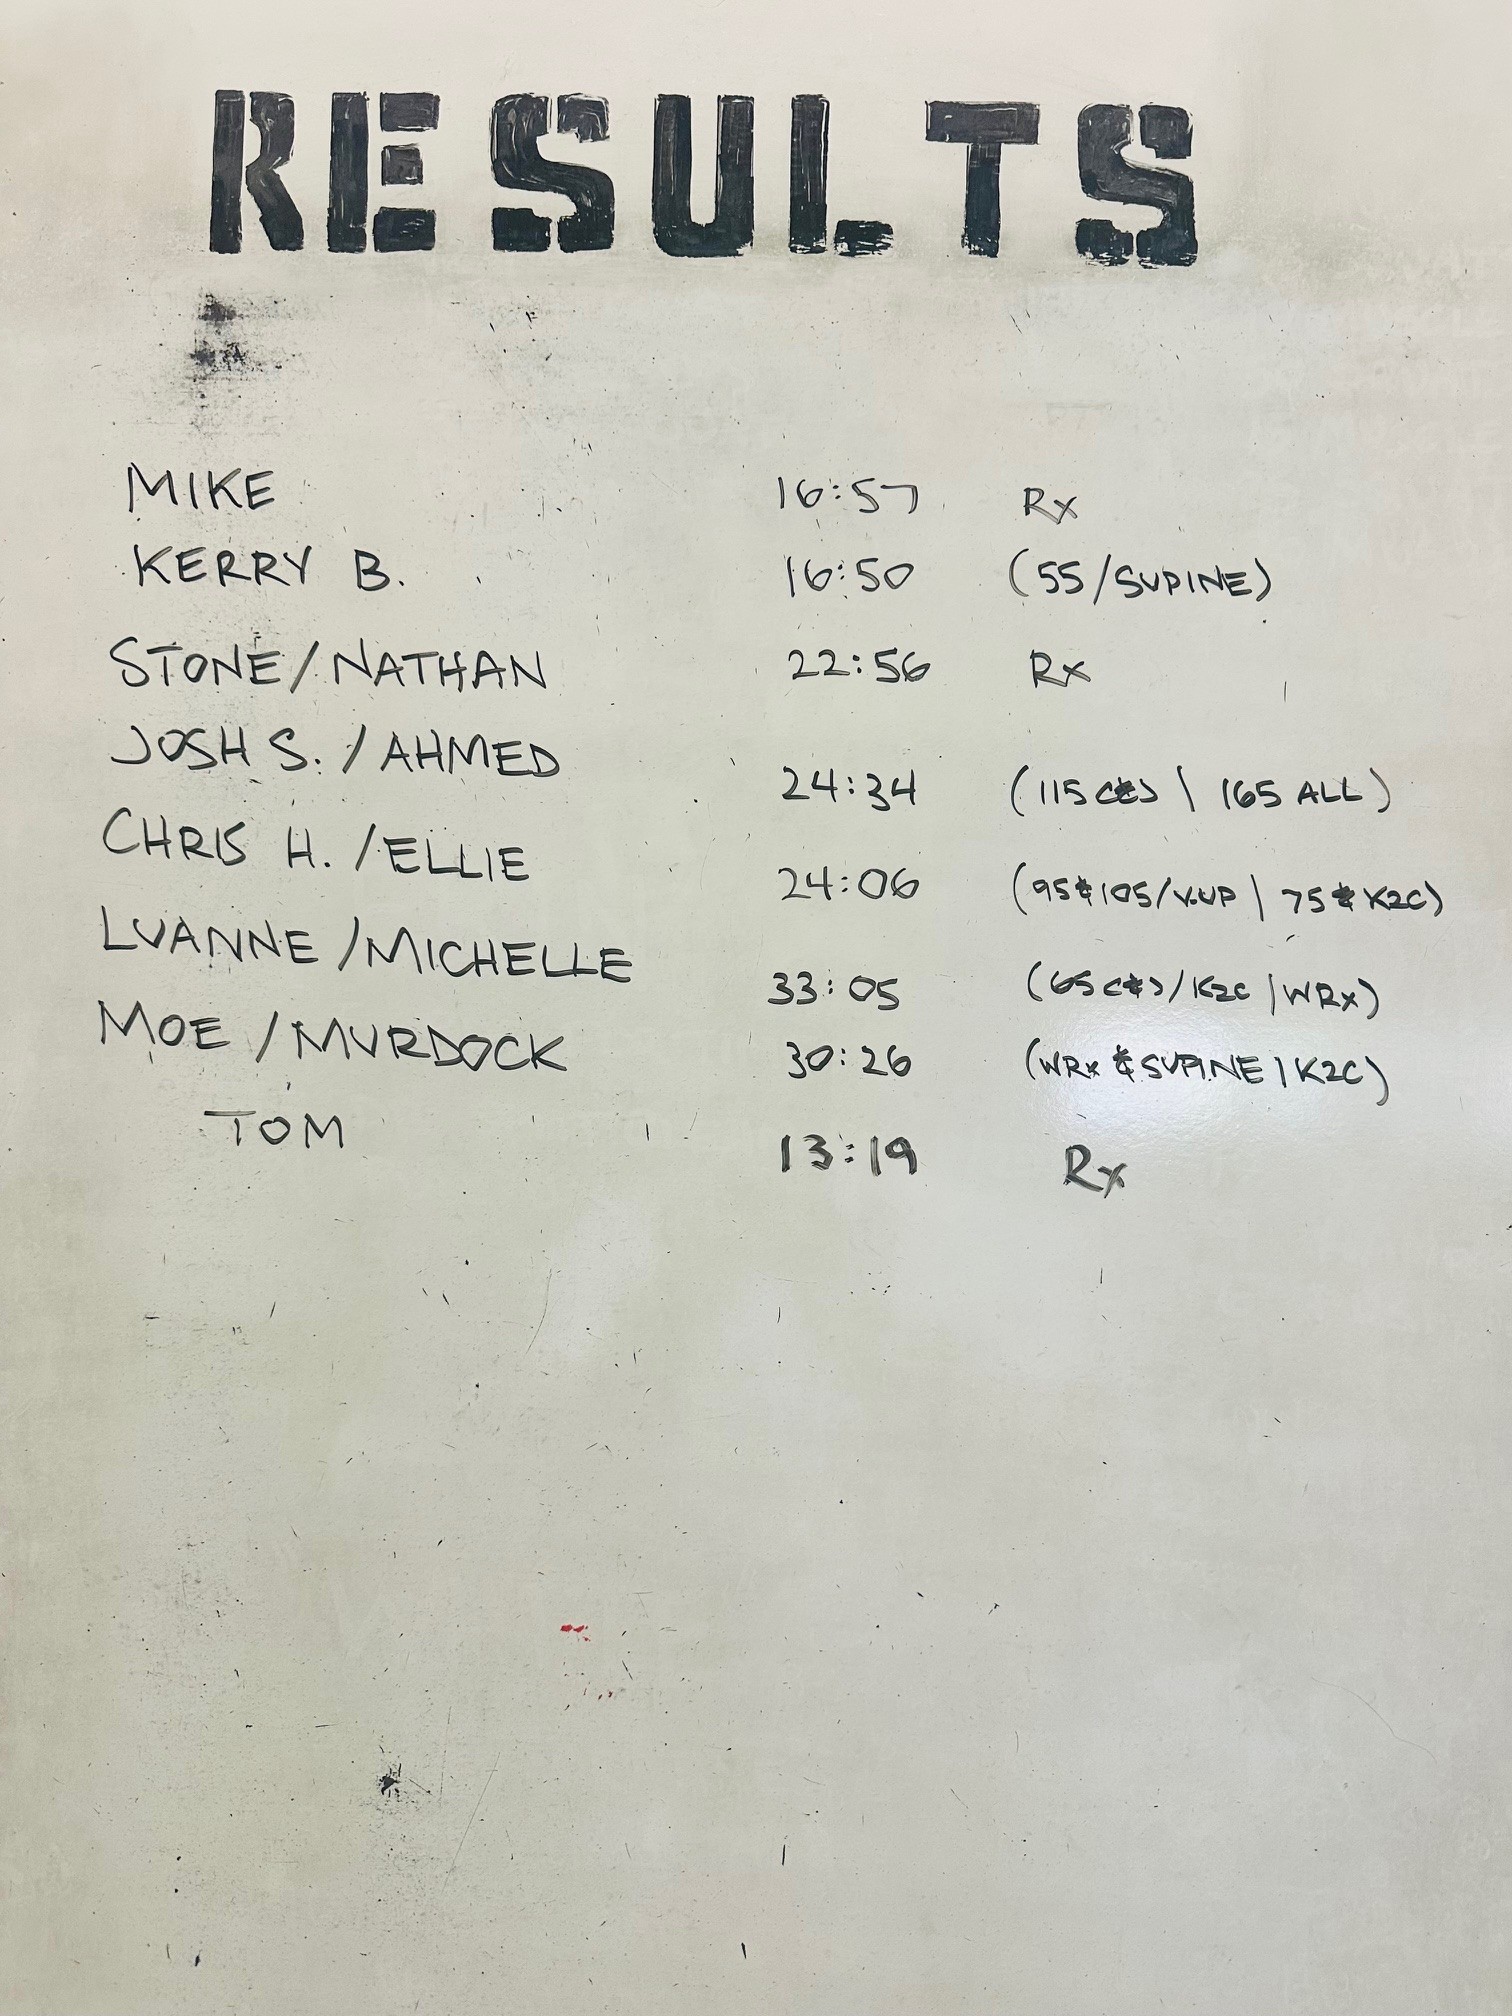 RESULTS
MIKE 16:57 Rx
KERRY B. 16:50 (55/SUPINE)
STONE/NATHAN 22:56 Rx
JOSH S./AHMED 24:34 (115 | 165 ALL)
CHRIS H./ELLIE 24:06 (95 & 105/V.UP | 75 & K2C)
LUANNE/MICHELLE 33:05 (65 /K2C | WRx)
MOE/MURDOCK 30:26 (WRx & SUPINE | K2C)
TOM 13:19 Rx